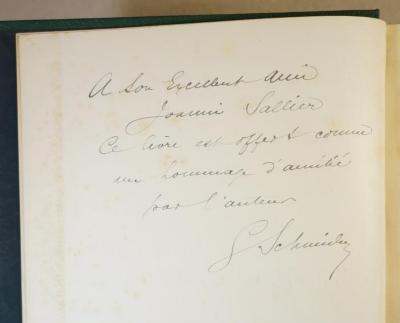 A Son Excellent Ami
Joanni Sallier
Ce livre est offert comme
un hommage d'amitié
par l'auteur
G Schneider